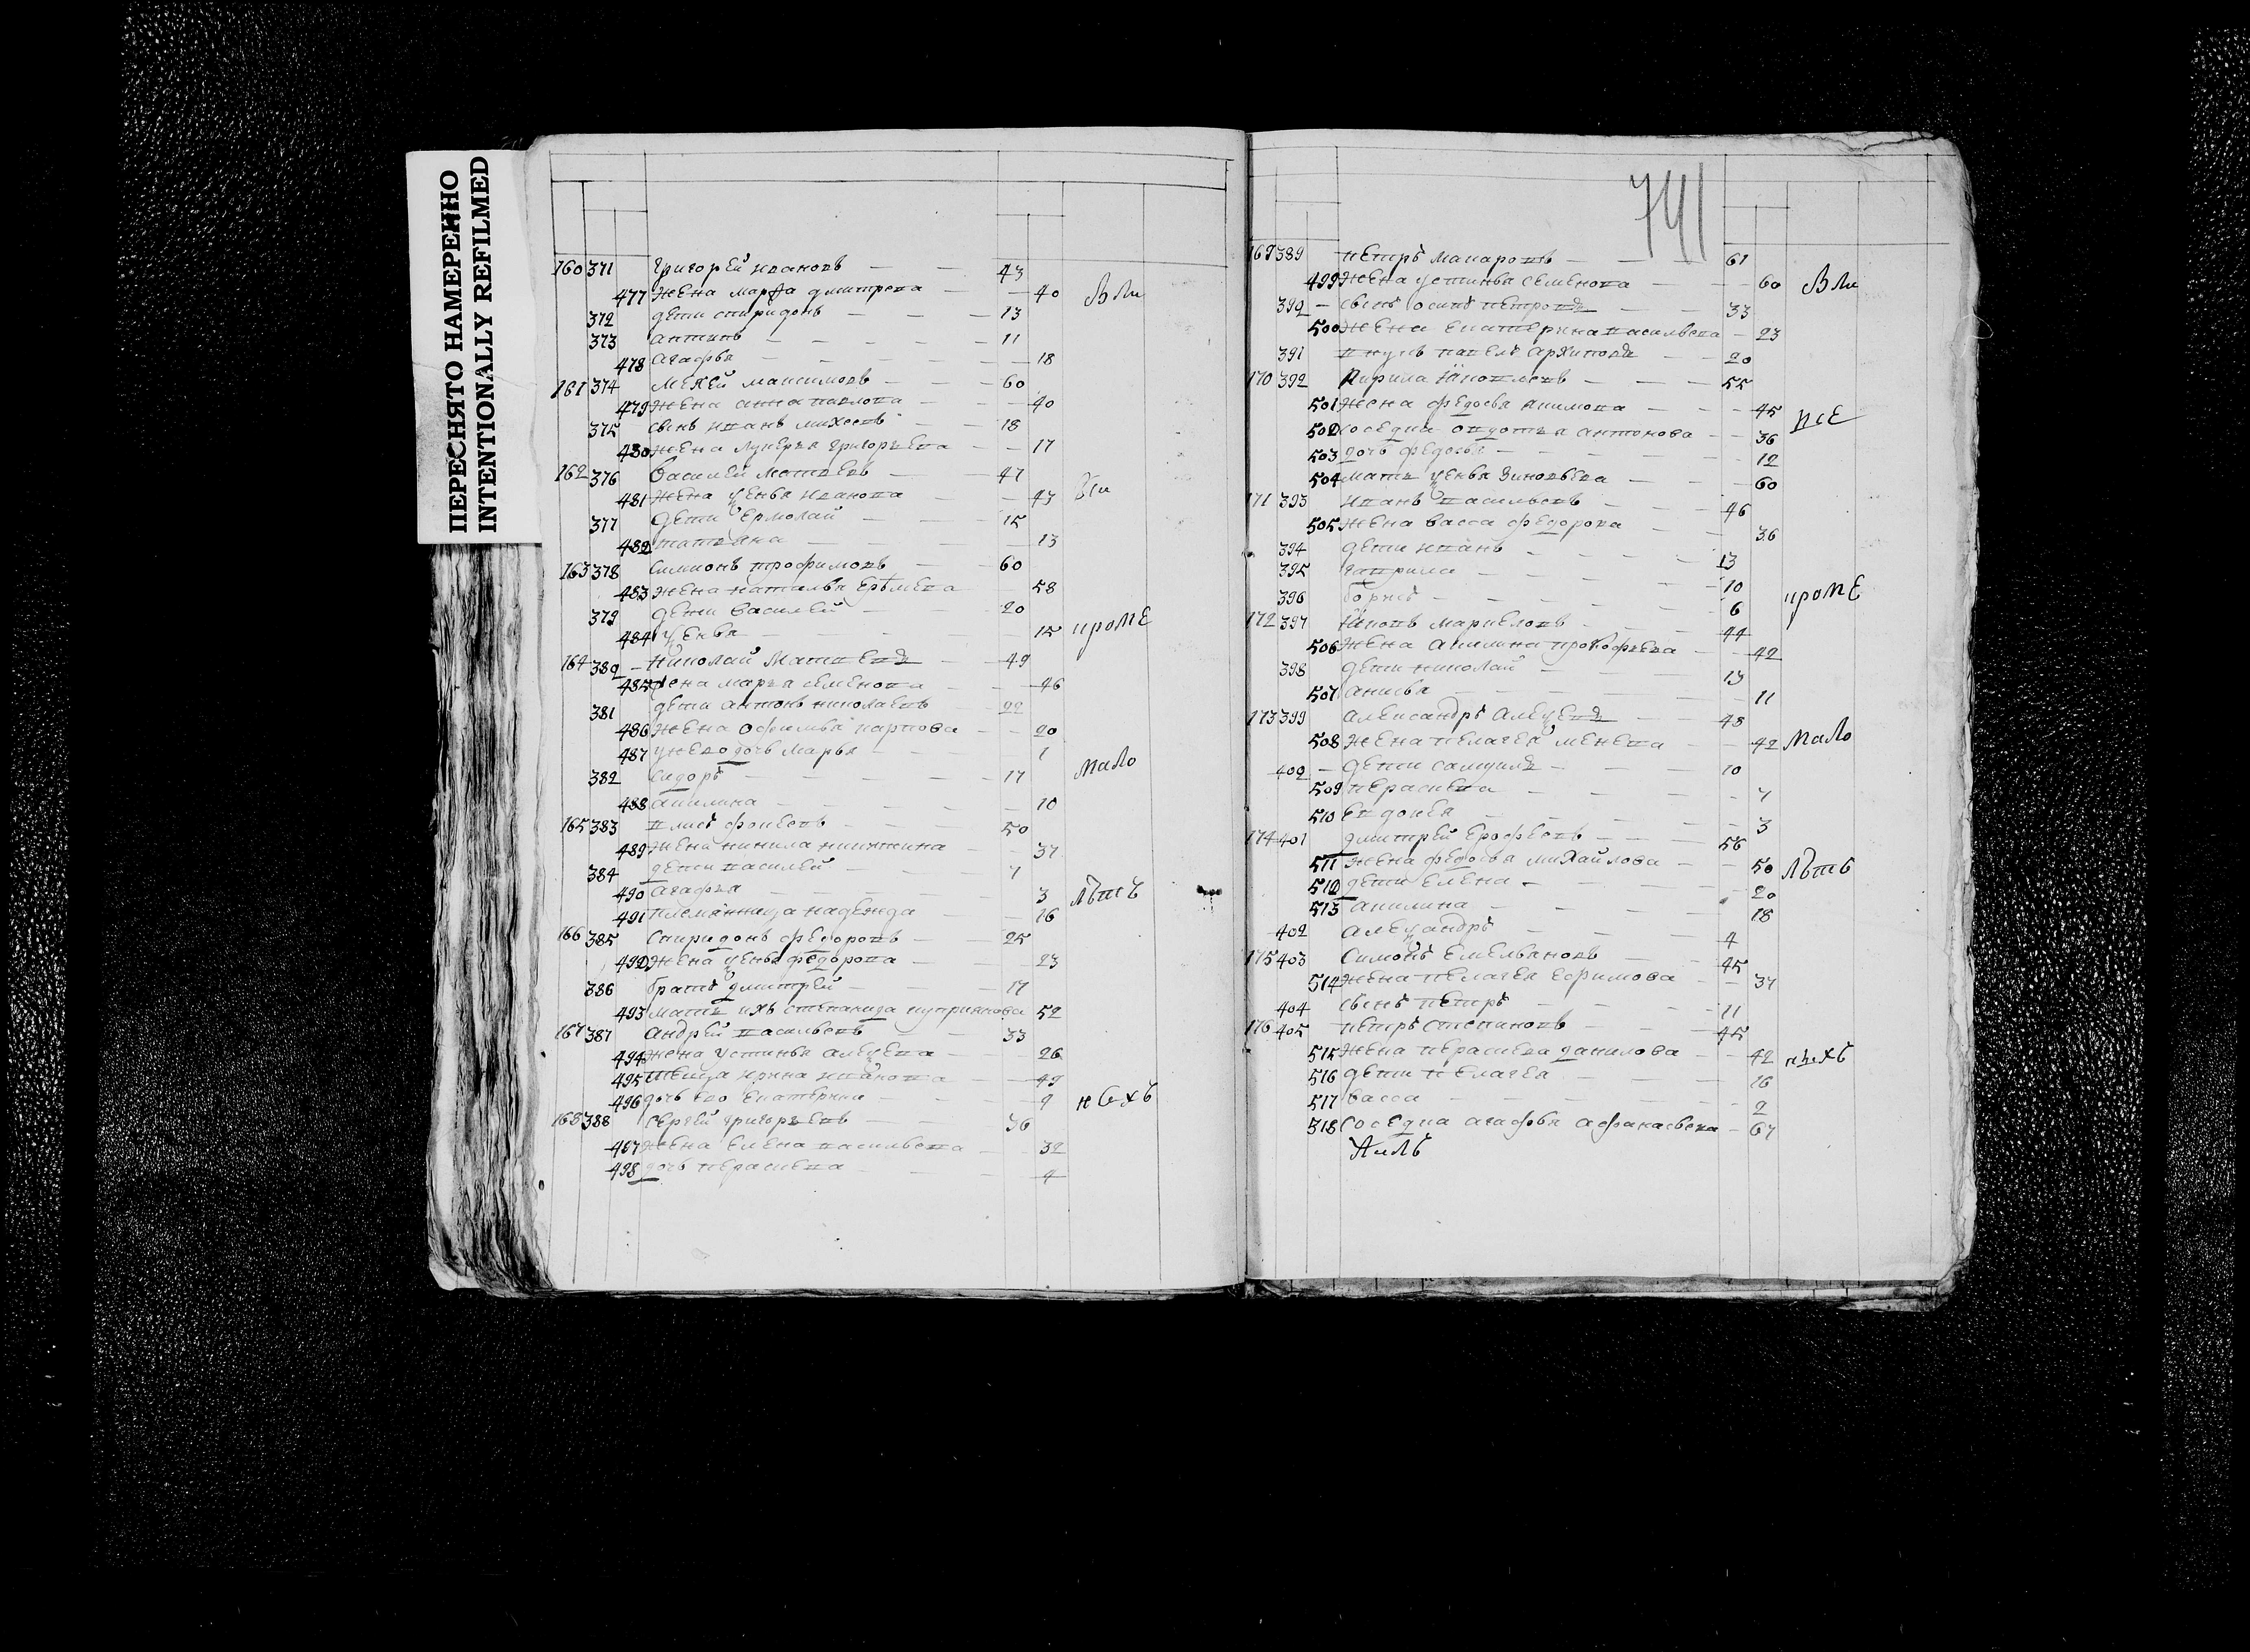 ПЕРЕСНЯТО НАМЕРЕННО
INTENTIONALLY REFILMED
160 371 Григорей Ивановъ 43
477 жена марфа дмитрева 40 Вли
372 дети спиридонъ 13
373 антипъ 11
478 агафья 18
161 374 Михей максимовъ 60
479 жена анна павлова 40
375 сынъ иванъ михеевъ 18
480 жена лукерья григорьева 17
162 376 Василей матвеевъ 47
481 жена ксенья иванова 47 Вли
377 дети ермолай 15
482 татьяна 13
163 378 Симионъ трофимовъ 60
483 жена наталья еремеева 58
379 дети василей 20
484 ксенья 15 кроме
164 380 Николай матвеевъ 49
485 жена марья семенова 46
381 дети антонъ николаевъ 22
486 жена офимья карпова 20
487 у нево дочь марья 1
382 сидоръ 17 мало
488 акилина 10
165 383 власъ фокеевъ 50
489 жена никитина 37
384 дети василей 7
490 агафья 3 летъ
491 племянница надежда 16
166 385 Спиридонъ федоровъ 25
492 жена ксенья федорова 23
386 братъ дмитрей 17
493 мать ихъ степанида куприянова 52
167 387 андрей васильевъ 33
494 жена устинья алексева 26
495 теща ирина иванова 49
496 дочь ево екатерина 9
168 388 Сергей григорьевъ 36
497 жена елена васильева 32
498 дочь параскева 4
741
169 389 петръ макаровъ 61
499 жена устинья семенова 60 Вли
390 сынъ осипъ петровъ 33
500 жена екатерина васильева 23
391 внукъ павелъ архиповъ 20
170 392 Кирила яковлевъ 55
501 жена федосья акимова 45 все
502 соседка овдотья антонова 36
503 дочь федосья 12
504 мать ксенья зиновьева 60
171 393 иванъ васильевъ 46
505 жена васса федорова 36
394 дети иванъ 13
395 гаврила 10
396 борисъ 6 кроме
172 397 маркеловъ 44
506 жена акилина прокофьева 42
398 дети николай 13
507 анисья 11
173 399 александръ алексевъ 48
508 жена пелагея 42 мало
400 дети самуилъ 10
509 параскева 7
510 евдокея 3
174 401 дмитрей ерофеевъ 56
511 жена федосья михайлова 50 летъ
512 дети елена 20
513 акилина 18
402 александръ 4
175 403 Симонъ емельяновъ 45
514 жена пелагея ефимова 37
404 сынъ петръ 11
176 405 петръ степановъ 45
515 жена параскева данилова 42
516 дети пелагея 16
517 васса 2
518 соседка агафья афанасьева 67